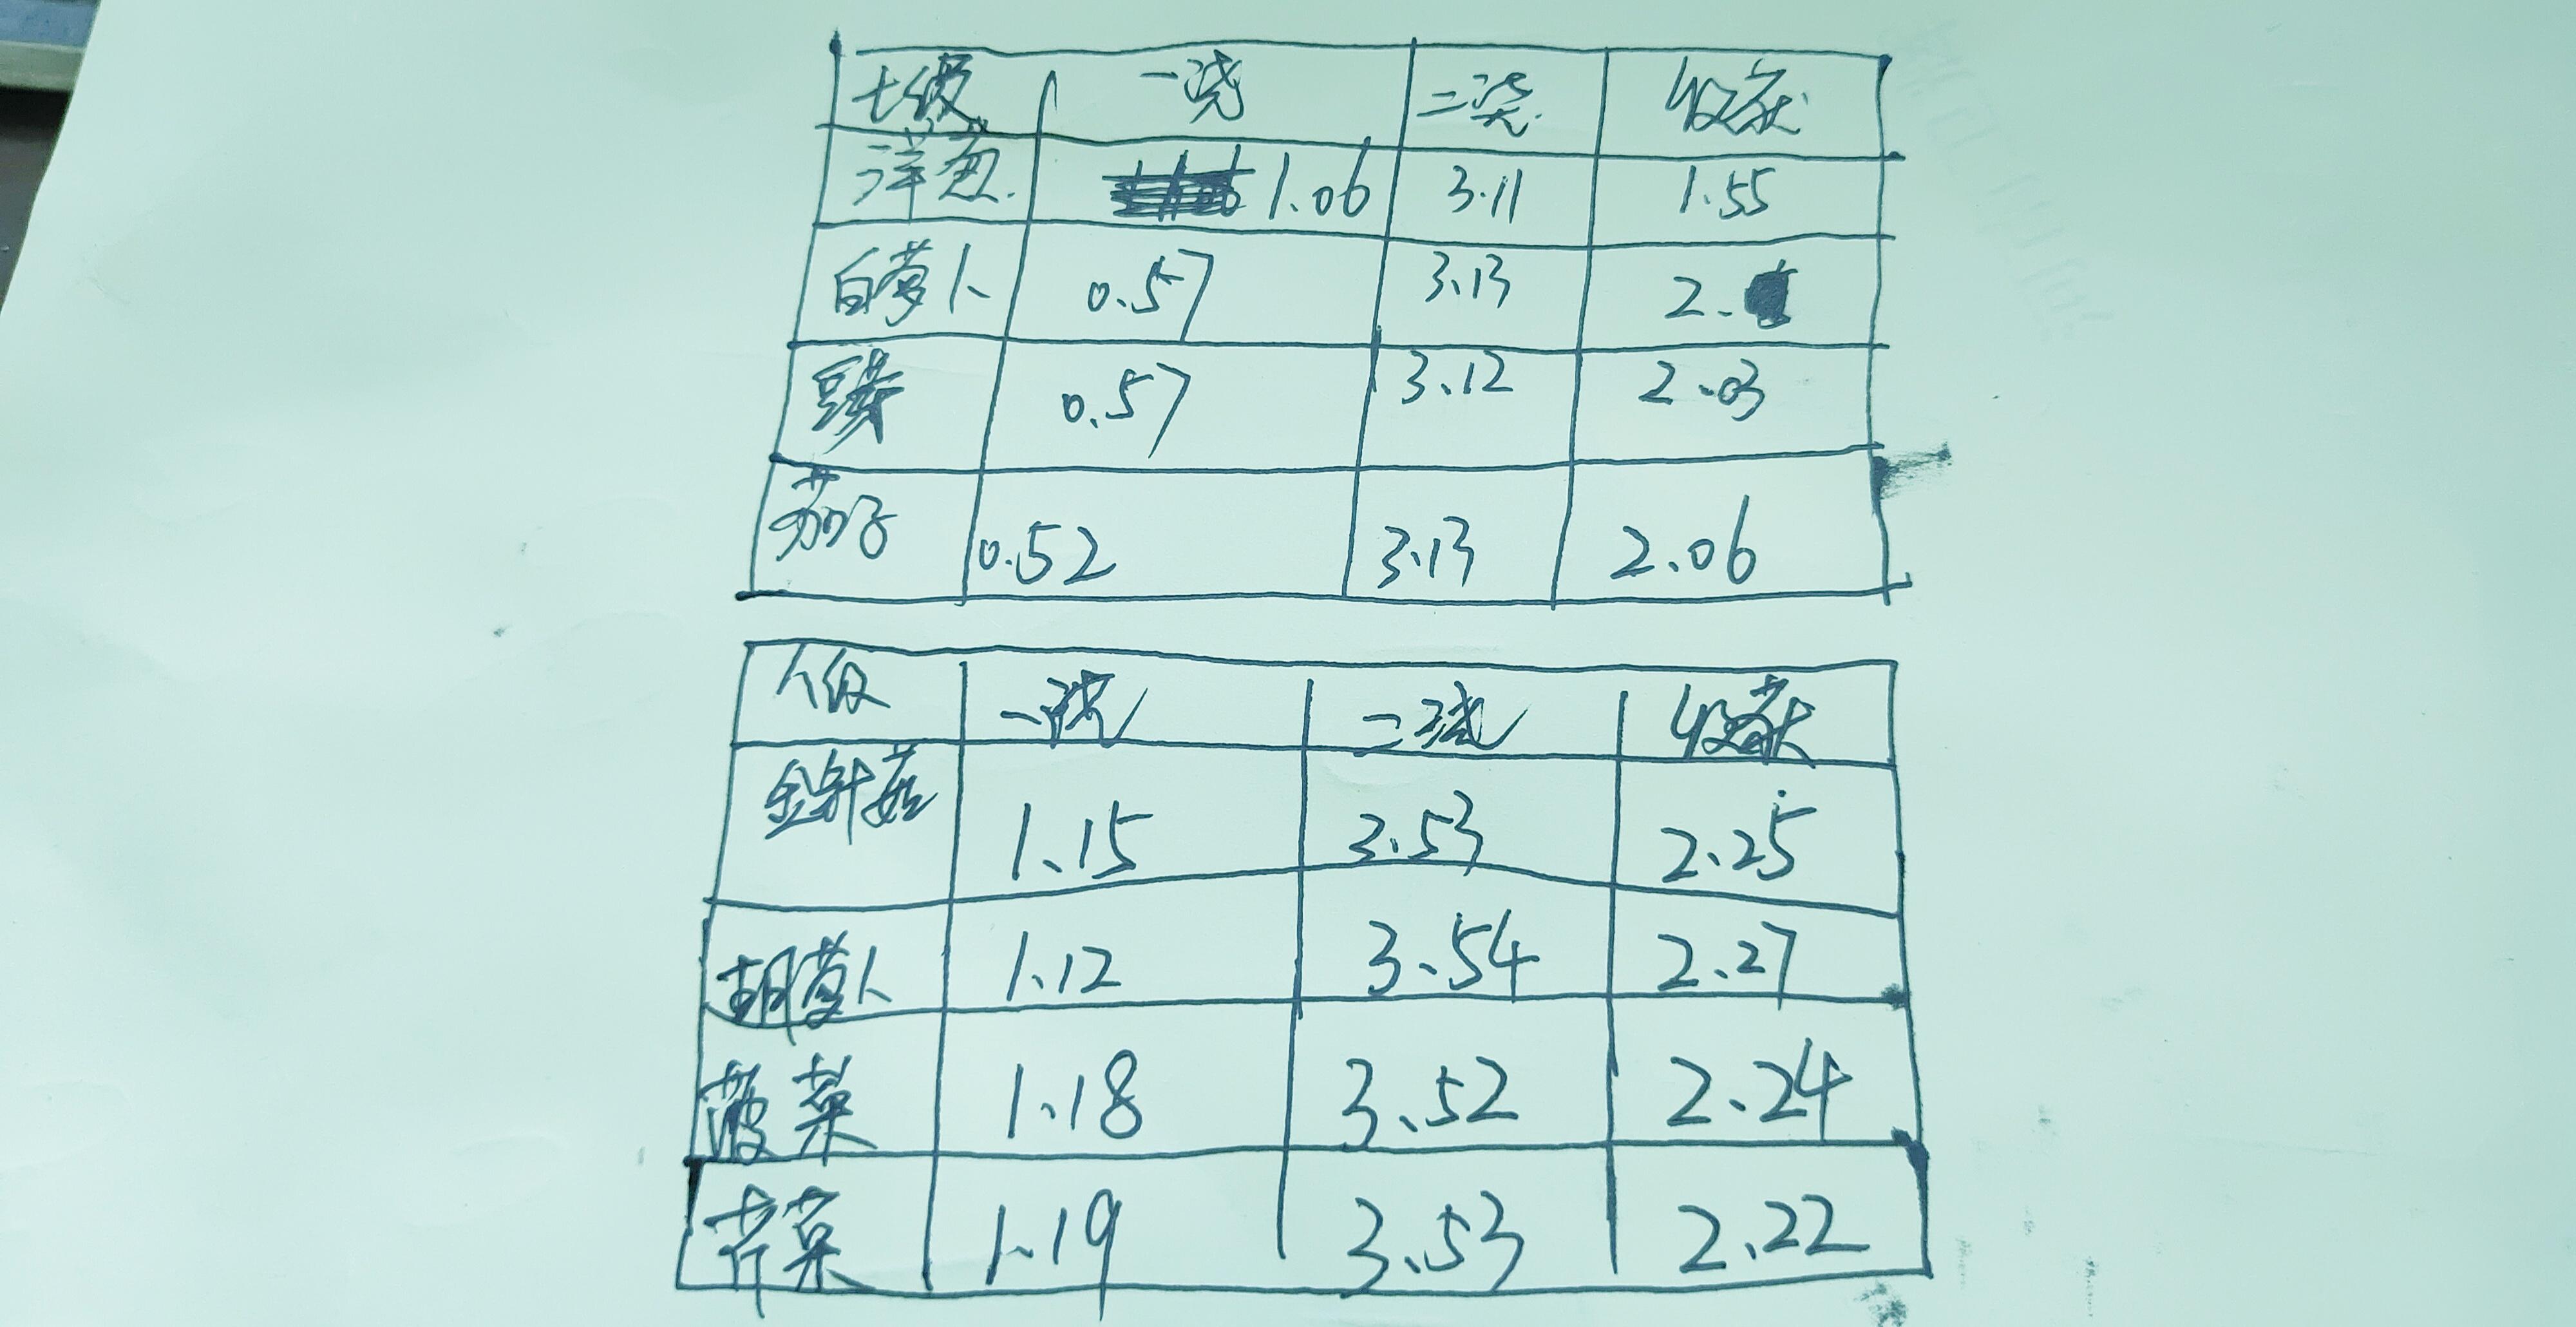 七级 一浇 二浇 收获
洋葱 1.06 3.11 1.55
白萝卜 0.57 3.13 2.
豆芽 0.57 3.12 2.03
茄子 0.52 3.13 2.06
八级 一浇 二浇 收获
金针菇 1.15 3.53 2.25
胡萝卜 1.12 3.54 2.27
菠菜 1.18 3.52 2.24
芹菜 1.19 3.53 2.22